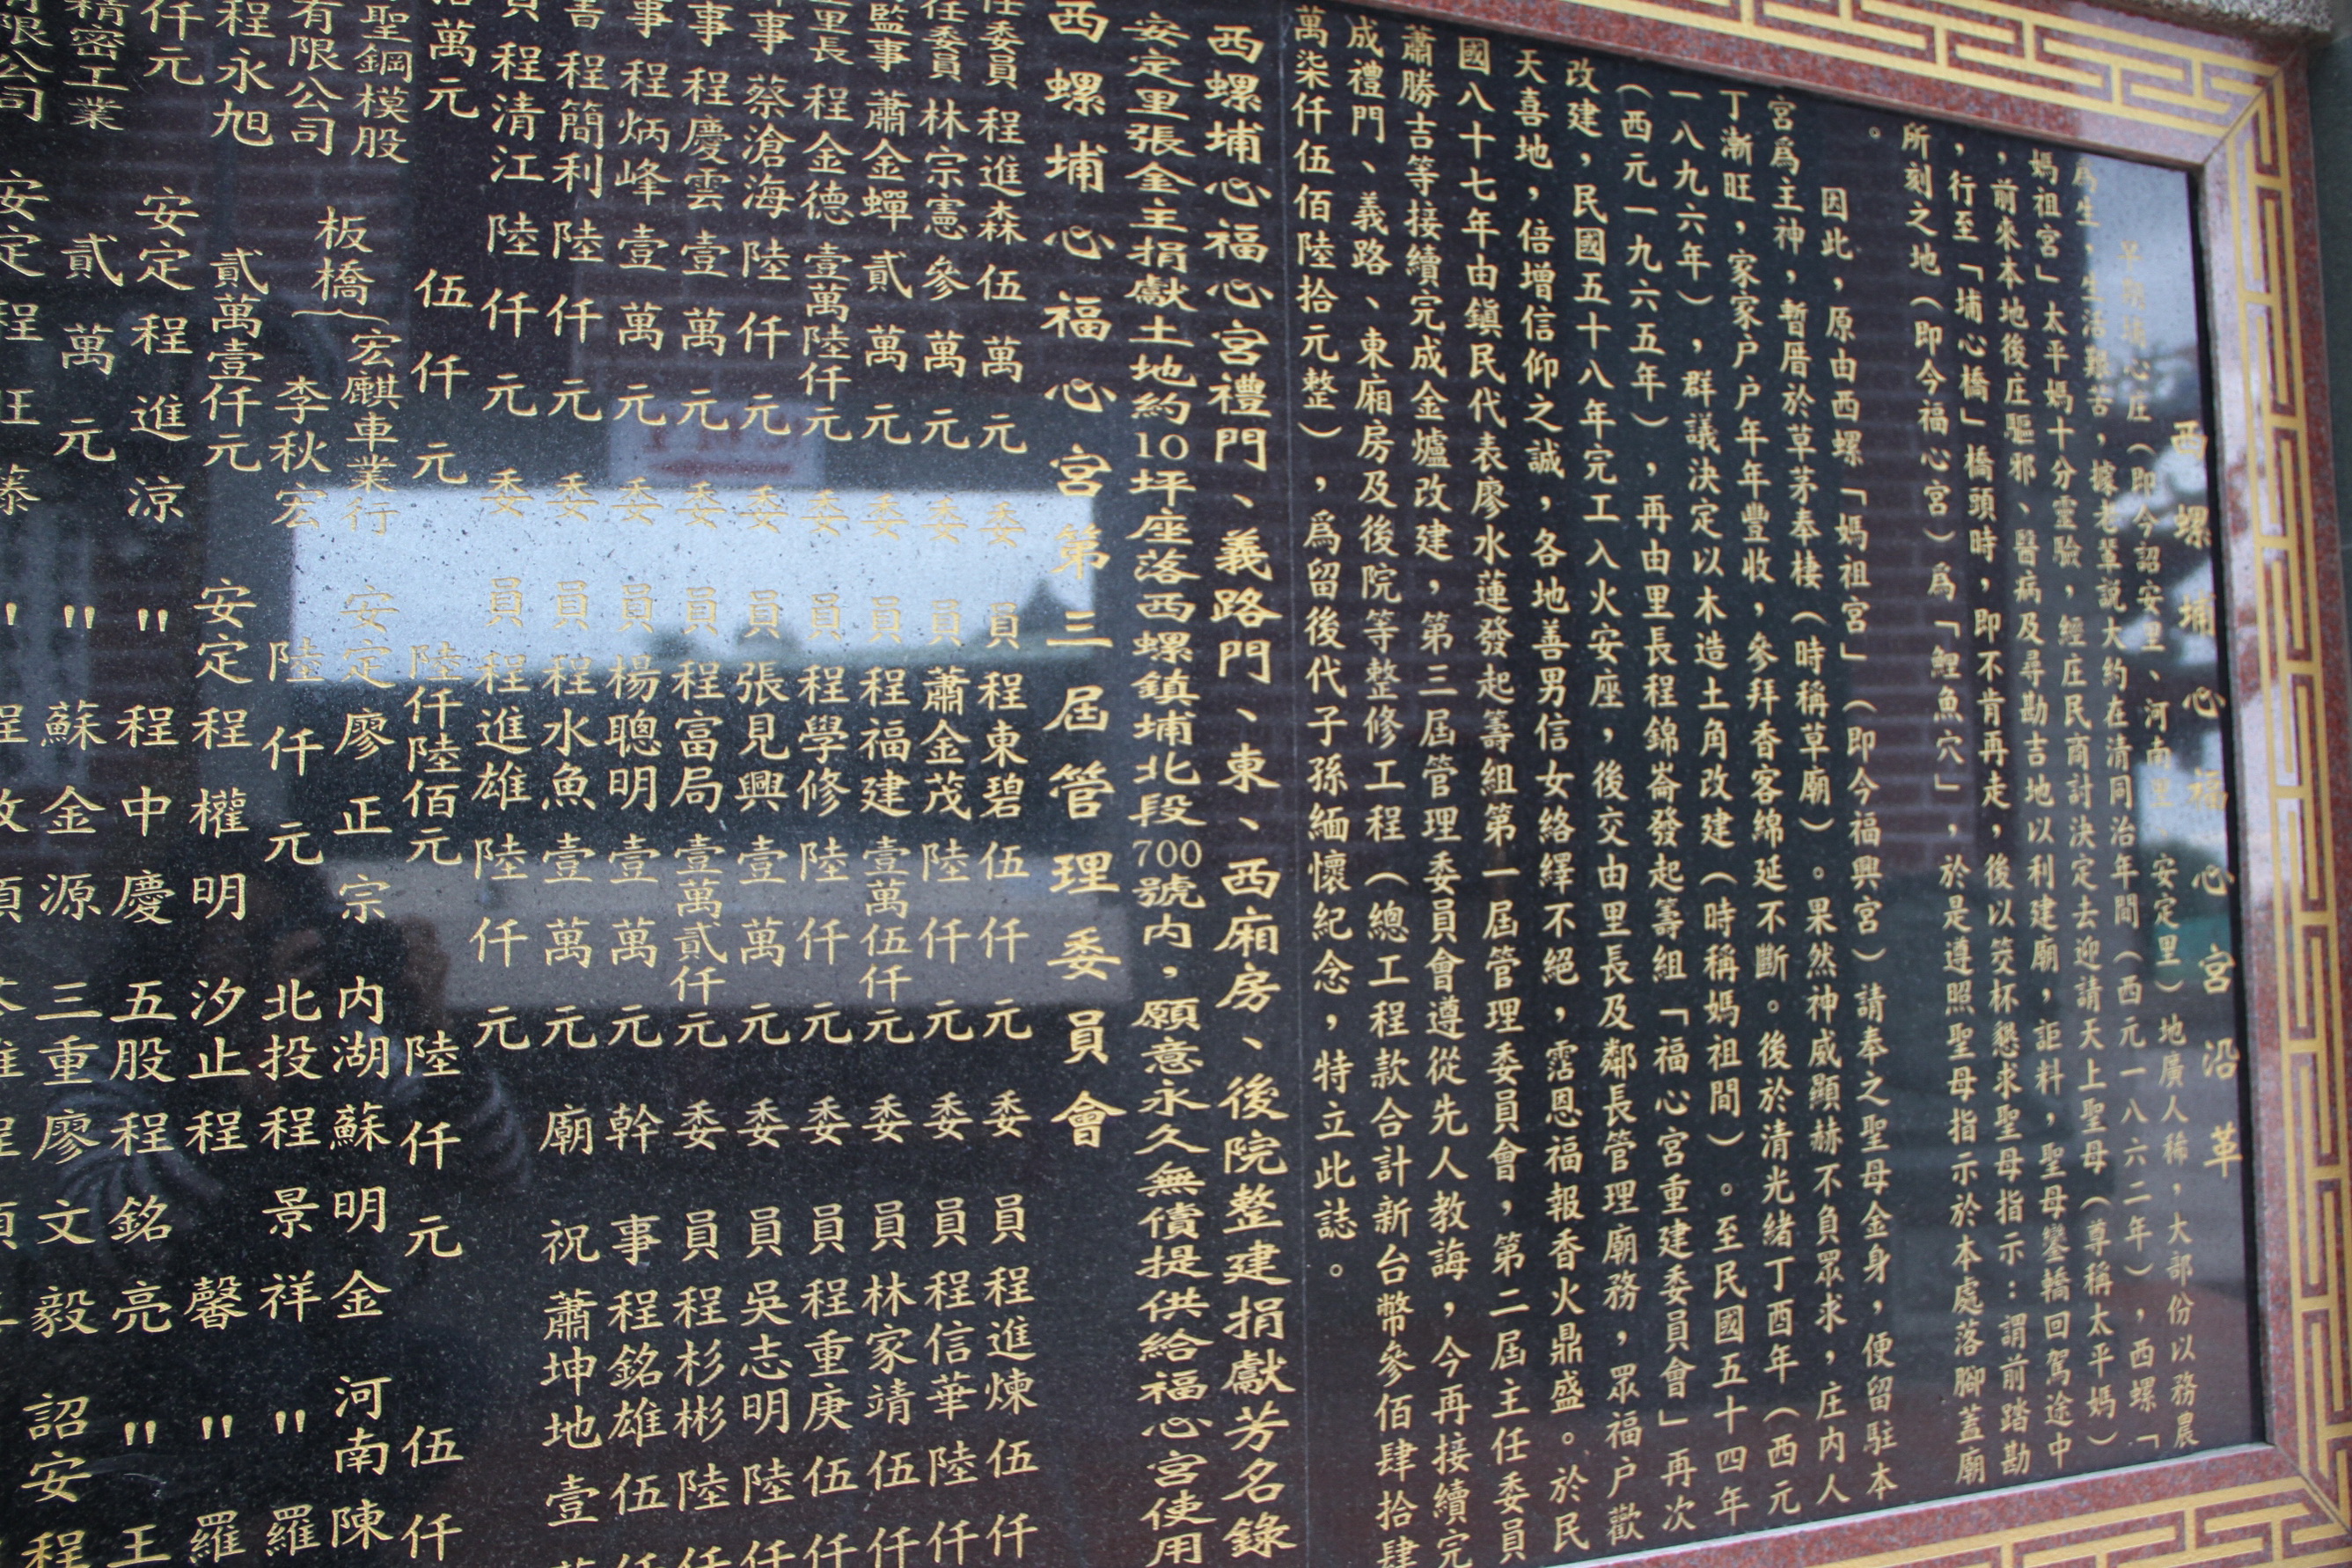 西螺埔心福心宮沿革
早期埔心庄（即今詔安里、河南里、安定里）地廣人稀，大部份以務農
為生，生活艱苦，據老輩說大約在清同治年間（西元一八六二年），西螺「
媽祖宮」太平媽十分靈驗，經庄民商討決定去迎請天上聖母（尊稱太平媽）
，前來本地後庄驅邪、醫病及尋勘吉地以利建廟，詎料，聖母鑾轎回駕途中
，行至「埔心橋」橋頭時，即不肯再走，後以筊杯懇求聖母指示：謂前踏勘
所刻之地（即今福心宮）為「鯉魚穴」，於是遵照聖母指示於本處落腳蓋廟
。
因此，原由西螺「媽祖宮」（即今福興宮）請奉之聖母金身，便留駐本
宮為主神，暫厝於草茅奉棲（時稱草廟）。果然神威顯赫不負眾求，庄內人
丁漸旺，家家戶戶年年豐收，參拜香客綿延不斷。後於清光緒丁酉年（西元
一八九六年），群議決定以木造土角改建（時稱媽祖間）。至民國五十四年
（西元一九六五年），再由里長程錦崙發起籌組「福心宮重建委員會」再次
改建，民國五十八年完工入火安座，後交由里長及鄰長管理廟務，眾福戶歡
天喜地，倍增信仰之誠，各地善男信女絡繹不絕，霑恩福報香火鼎盛。於民
國八十七年由鎮民代表廖水蓮發起籌組第一屆管理委員會，第二屆主任委員
蕭勝吉等接續完成金爐改建，第三屆管理委員會遵從先人教誨，今再接續完
成禮門、義路、東廂房及後院等整修工程（總工程款合計新台幣參佰肆拾肆
萬柒仟伍佰陸拾元整），為留後代子孫緬懷紀念，特立此誌。
西螺埔心福心宮禮門、義路門、東、西廂房、後院整建捐獻芳名錄
安定里張金主捐獻土地約10坪座落西螺鎮埔北段700號內，願意永久無償提供給福心宮使用
西螺埔心福心宮第三屆管理委員會
任委員 程進森 伍萬元 委員 程東碧 伍仟元 委員 程進煉 伍仟
任委員 林宗憲 參萬元 委員 蕭金茂 陸仟元 委員 程信華 陸仟
監事 蕭金蟬 貳萬元 委員 程福建 壹萬伍仟元 委員 林家靖 伍仟
里長 程金德 壹萬陸仟元 委員 程學修 陸仟元 委員 程重庚 伍仟
事 蔡滄海 陸仟元 委員 張見興 壹萬元 委員 吳志明 陸仟
事 程慶雲 壹萬元 委員 程富局 壹萬貳仟元 委員 程杉彬 陸仟
事 程炳峰 壹萬元 委員 楊聰明 壹萬元 幹事 程銘雄 伍仟
書 程簡利 陸仟元 委員 程水魚 壹萬元 廟祝 蕭坤地 壹萬
員 程清江 陸仟元 委員 程進雄 陸仟元
萬元 伍仟元 陸仟陸佰元 陸仟元 伍仟
聖鋼模股 宏麒車業行 安定 廖正宗 內湖 蘇明金 河南 陳
有限公司 板橋 李秋宏 陸仟元 北投 程景祥 〃 羅
程永旭 貳萬壹仟元 安定 程權明 汐止 程馨 〃 羅
仟元 安定 程進涼 〃 程中慶 五股 程銘亮 〃 王
精密工業 貳萬元 〃 蘇金源 三重 廖文毅 詔安 程
有限公司 安定 程旺